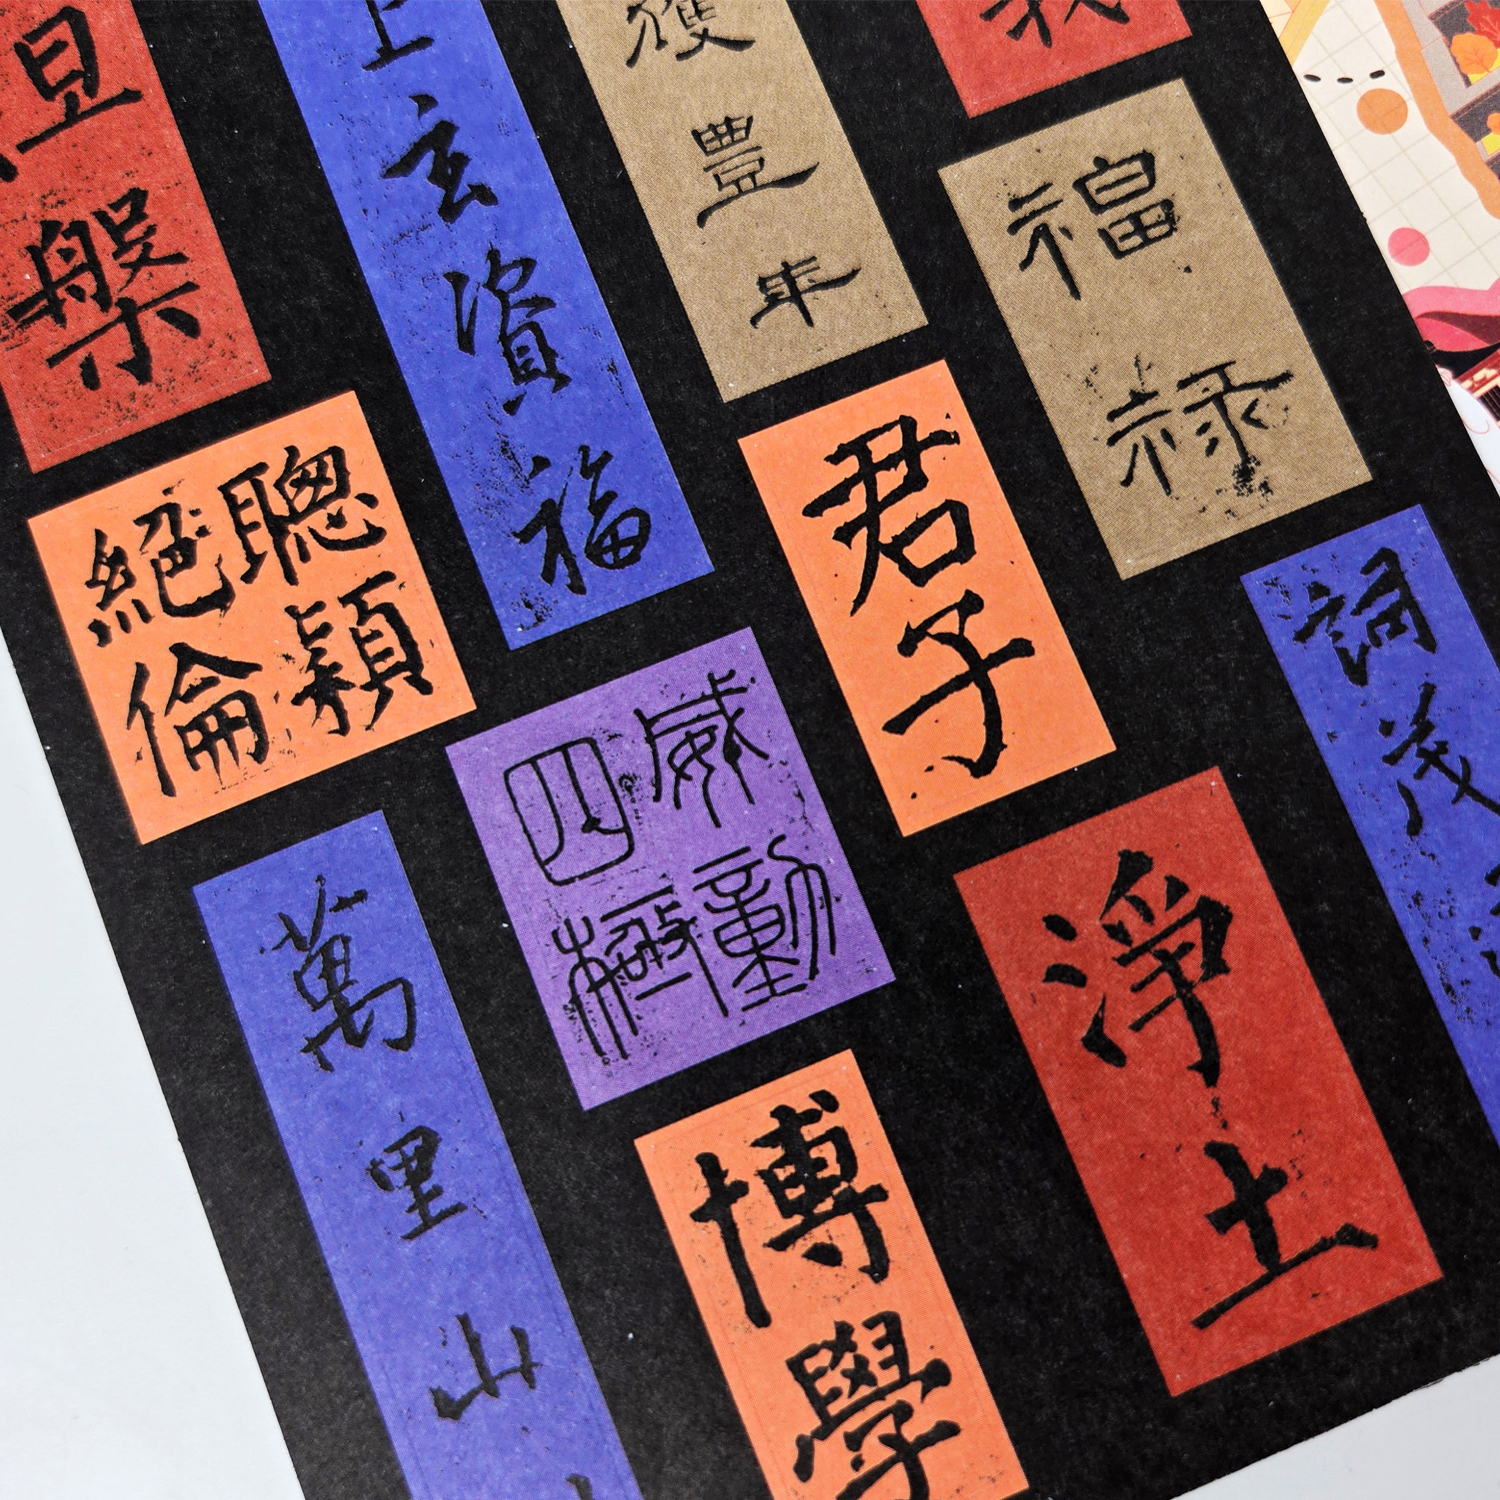 上玄資福
獲豐年
福祿
聰穎
絕倫
君子
威動
四極
詞茂
淨土
萬里山
博學
槃